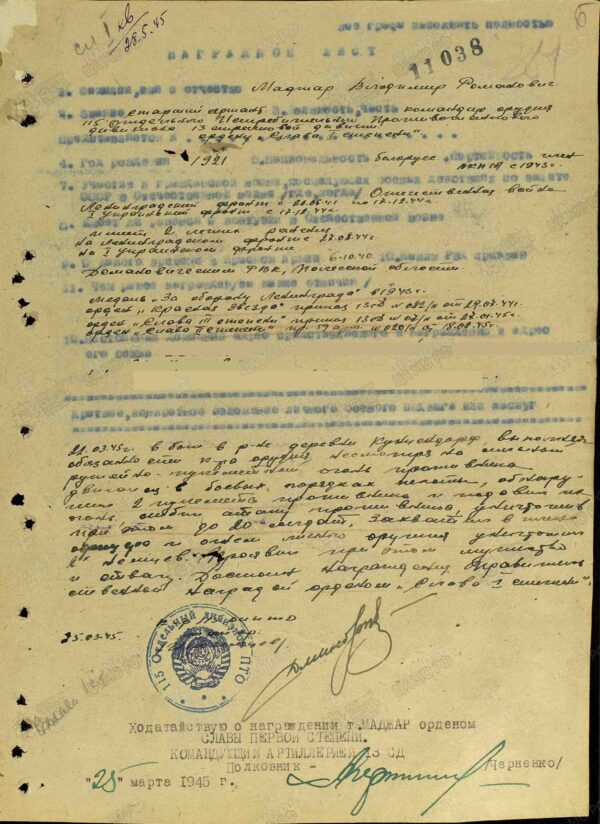 Все графы заполнять полностью
28.5.45
11038
5
НАГРАДНОЙ ЛИСТ
1. Фамилия, имя и отчество Маджар Владимир Романович
2. Звание старший сержант 3. должность, часть командир орудия
115 отдельного Истребительный Противотанкового
дивизиона 13 стрелковой дивизии
Представляется к ордену "Слава I степени"
4. Год рождения 1921 5. Национальность белорусс 6. Партийность член
ВКП(б) с 1943 г.
7. Участие в гражданской войне, последующих боевых действиях по защите
СССР и Отечественной войне /где, когда/ Отечественная война
Ленинградский фронт с 22.06.41 по 17.12.44г
I Украинский фронт с 17.12.44г
8. Имеет ли ранения и контузии в Отечественной войне
имеет 2 легких ранения
на Ленинградском фронте
на I Украинском фронте
9. С какого времени в Красной Армии 6.10.40 10. Каким РВК призван
Домановическим РВК, Полесской области
11. Чем ранее награжден, за какие отличия
медаль "За оборону Ленинграда" в 1943г.
орден "Красная Звезда" приказ 13 сд № 082/н от 29.07.44г.
орден "Слава III степени" приказ 13 сд № 07/н от 27.01.45г
орден "Слава II степени" пр. 59 арм. № 020/н от 18.02.45г.
12. Постоянный домашний адрес представляемого к награждению и адрес
его семьи
Краткое, конкретное изложение личного боевого подвига или заслуг
22.03.45г. в бою в р-не деревни выполняя
обязанности к-ра орудия, несмотря на сильный
ружейно-пулеметный огонь противника
двигаясь в боевых порядках пехоты, обнару-
жил 2 пулемета противника и подавил их
огонь, отбил атаку противника, уничтожив
при этом до 20 солдат, захватил в плен
и огнем личного оружия уничтожил
немцев. Проявил при этом мужество
и отвагу. Достоин награждения Правитель-
ственной наградой орденом "Слава I степени".
25.03.45.
115 Отдельный дивизион ПТО
Ходатайствую о награждении т.МАДЖАР орденом
СЛАВЫ ПЕРВОЙ СТЕПЕНИ.
КОМАНДУЮЩИЙ АРТИЛЛЕРИЕЙ 13 СД
Полковник - /Черненко/
"25" марта 1945 г.